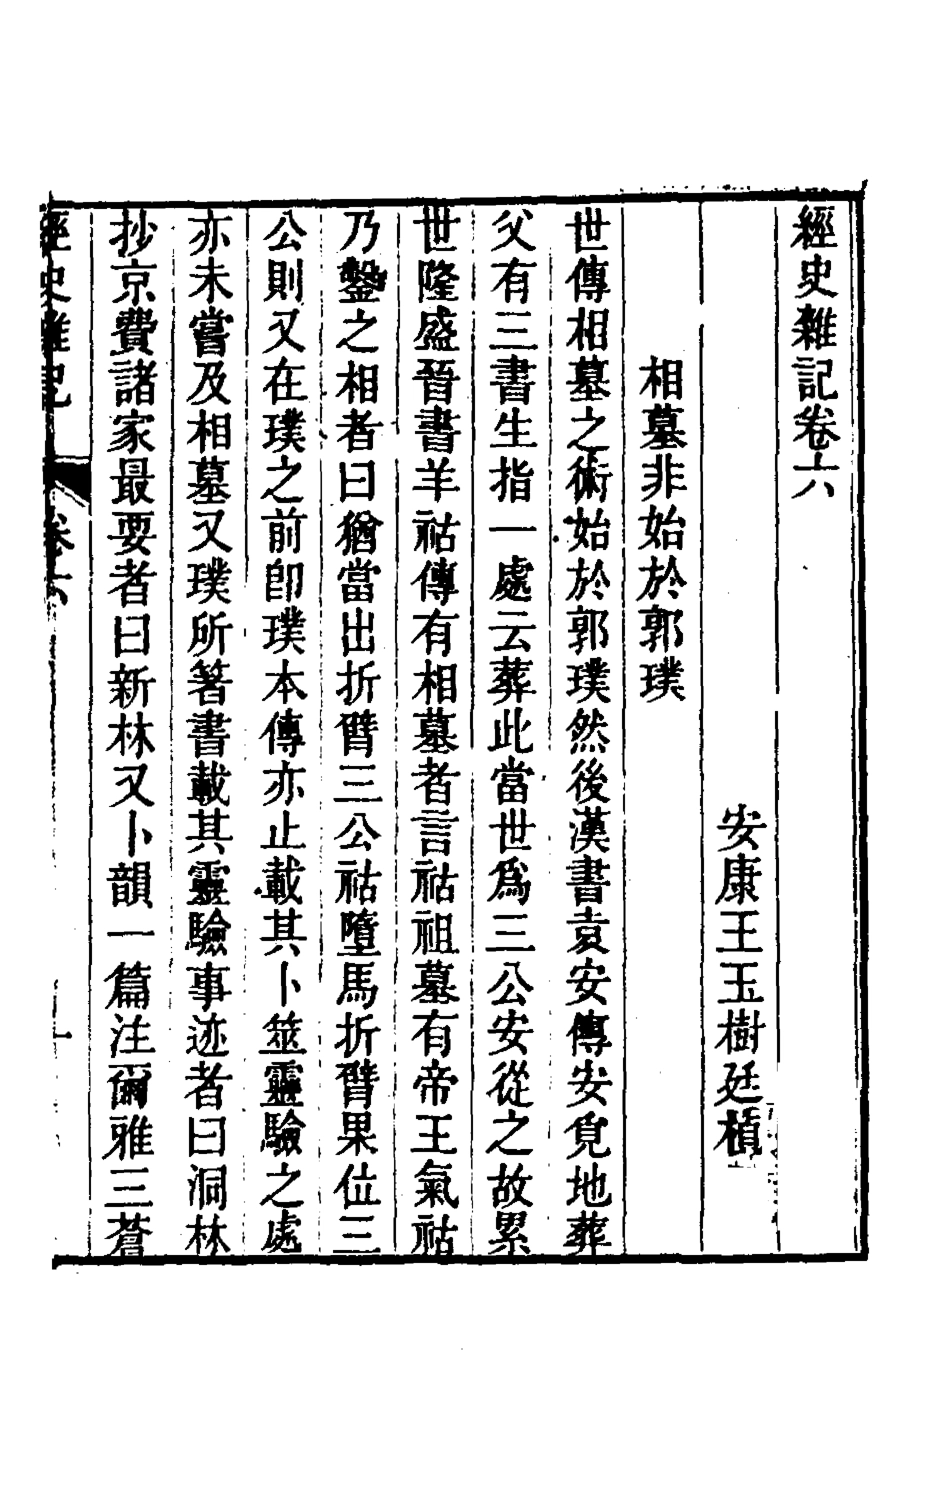 經史雜記卷六
安康王玉樹廷楨
相墓非始於郭璞
世傳相墓之術始於郭璞然後漢書袁安傳安覓地葬
父有三書生指一處云葬此當世爲三公安從之故累
世隆盛晉書羊祜傳有相墓者言祜祖墓有帝王氣祜
乃鑿之相者曰猶當出折臂三公祜墮馬折臂果位三
公則又在璞之前卽璞本傳亦止載其卜筮靈驗之處
亦未嘗及相墓又璞所箸書載其靈驗事迹者曰洞林
抄京費諸家最要者曰新林又卜韻一篇注爾雅三蒼
經史雜記 卷六 一